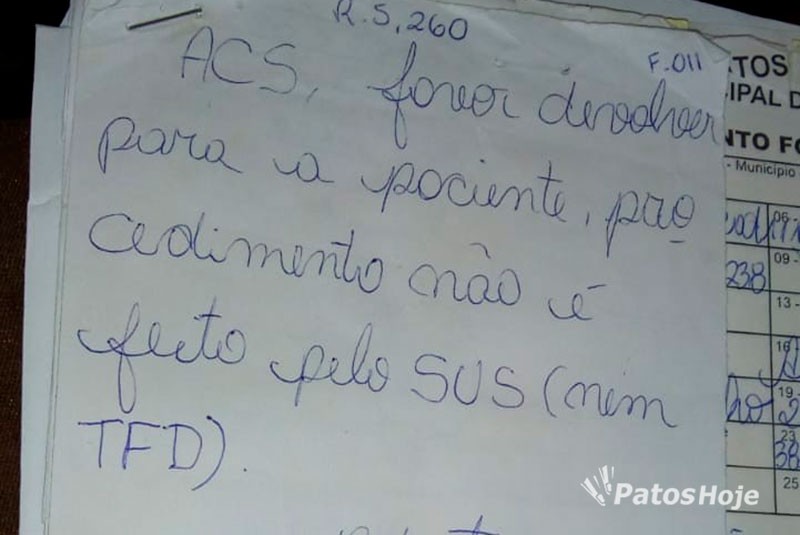 R.S.260
F.011
ACS, favor devolver
para a paciente, pro
cedimento não é
feito pelo SUS (nem
TFD).
TOS
IPAL D
NTO FO
- Município
09 -
238
13 -
16
19 -
23
38
25
PatosHoje